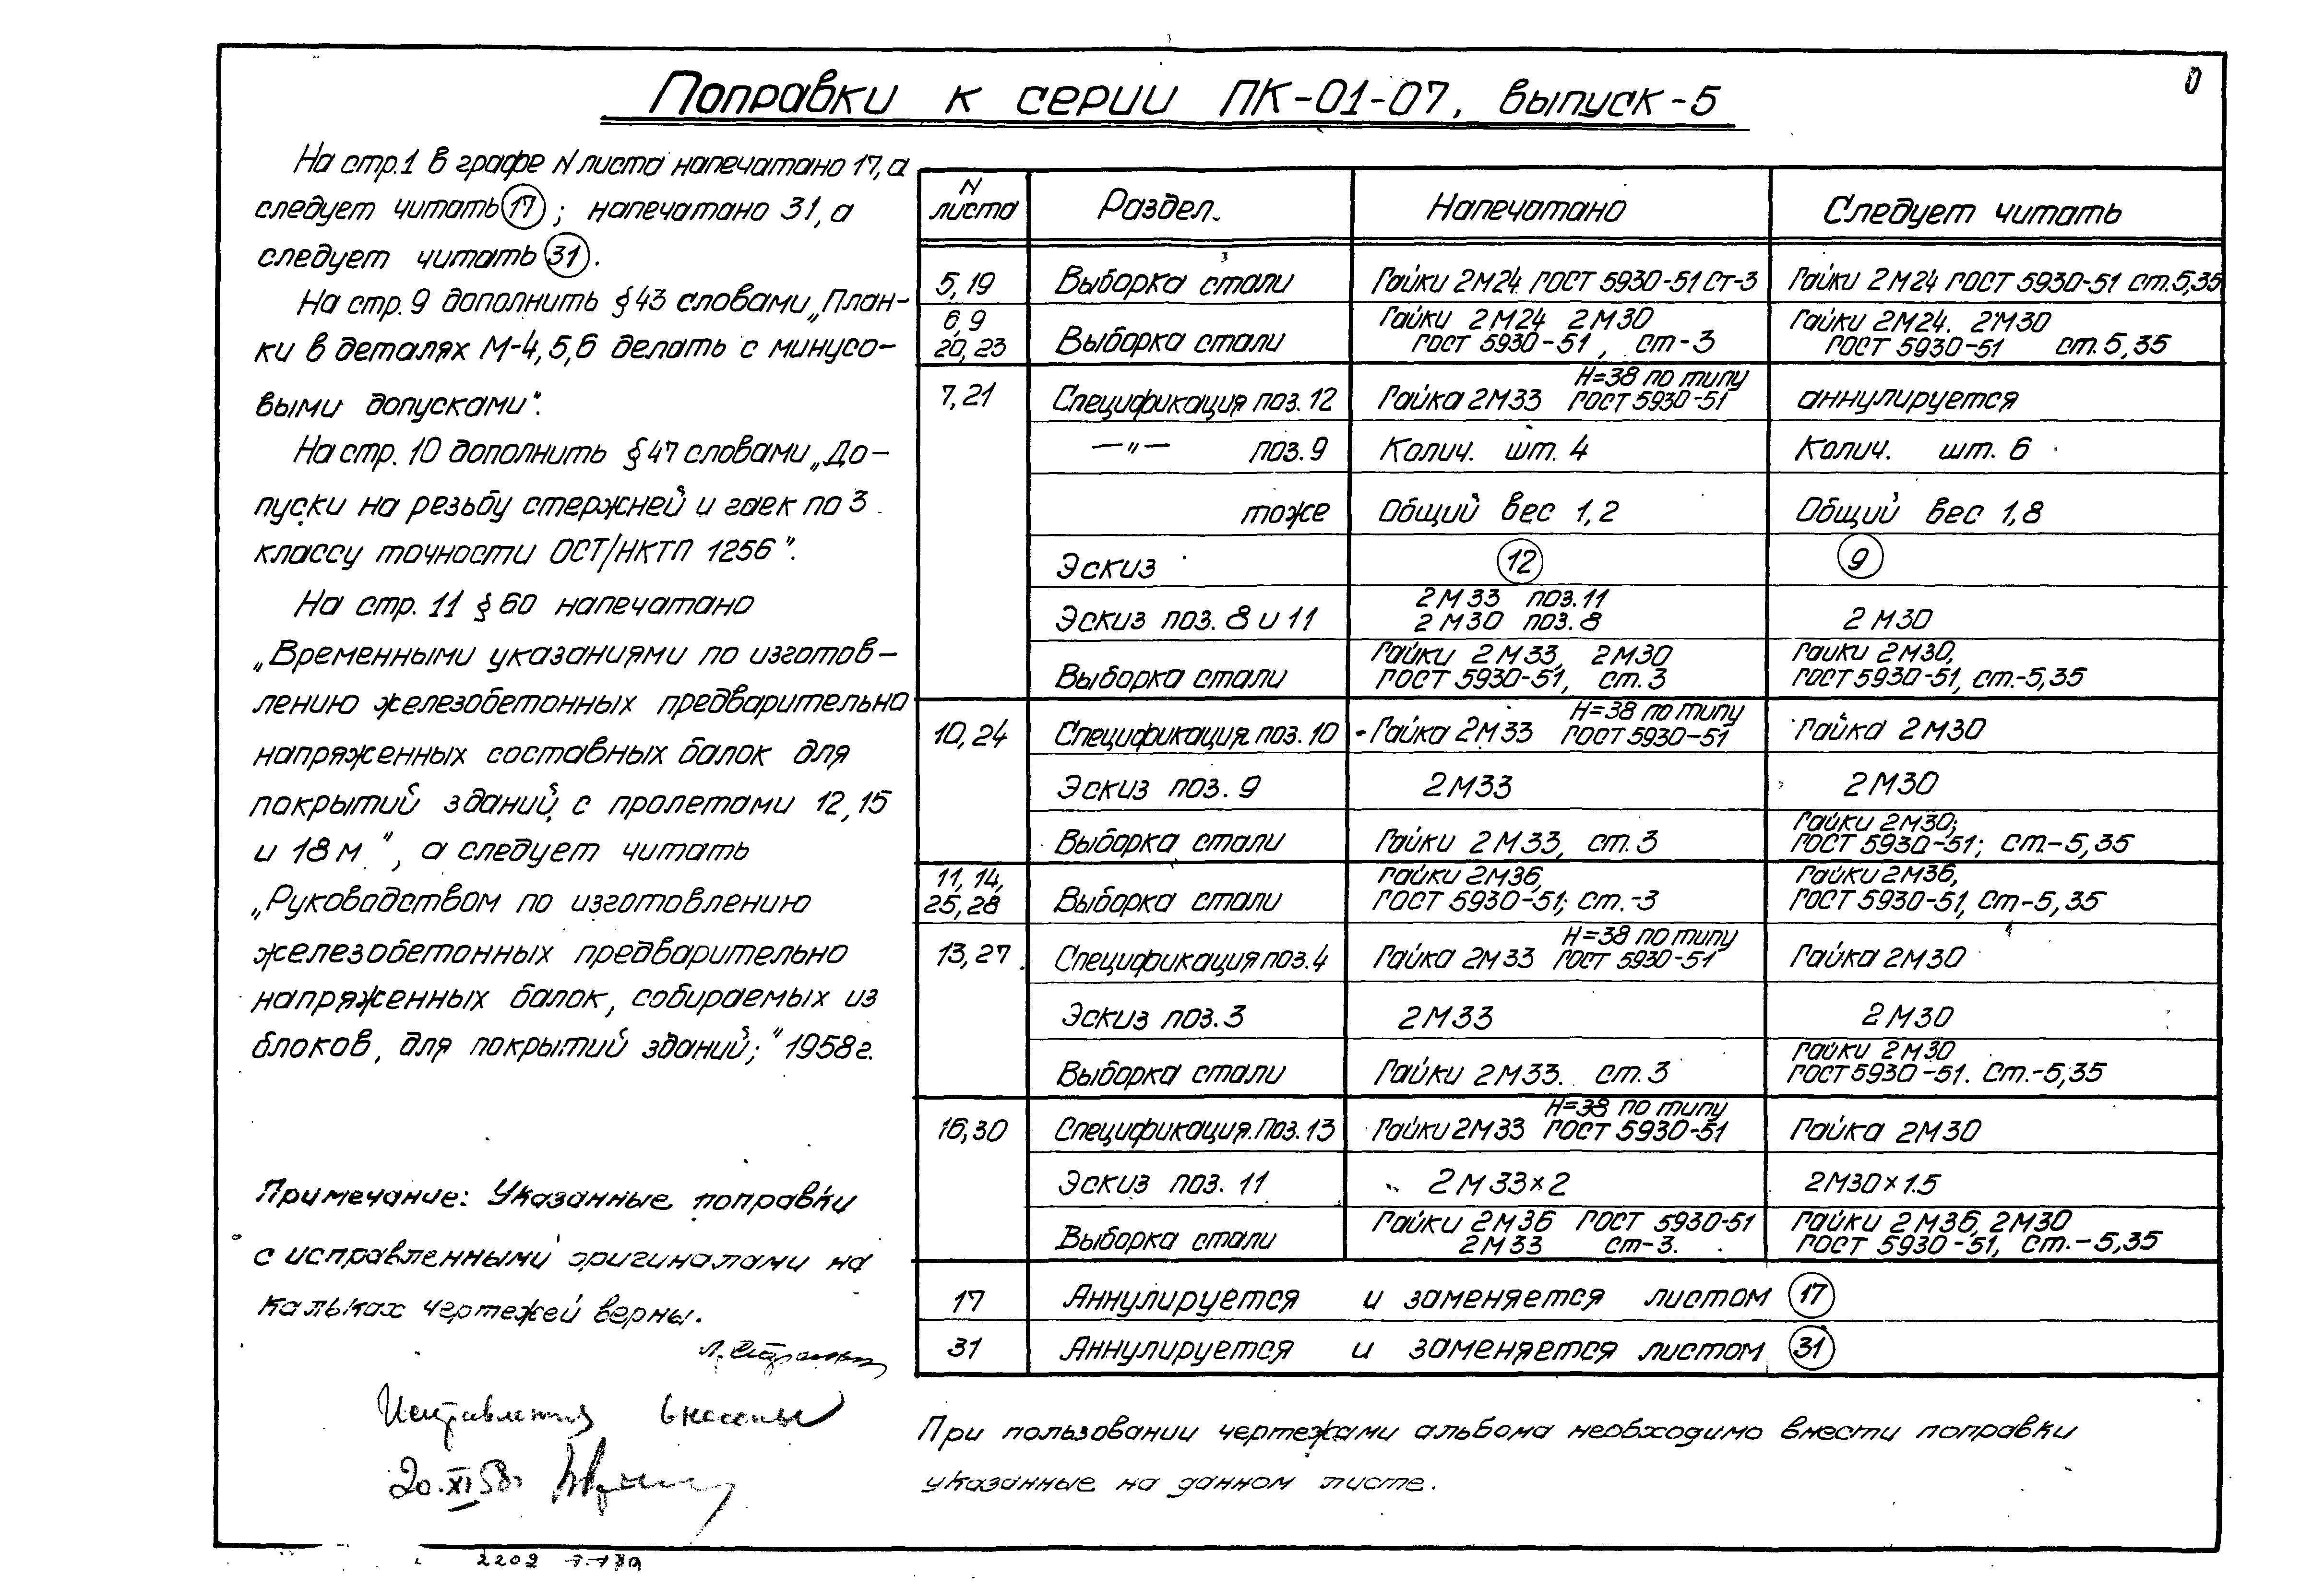 Поправки к серии ПК-01-07, выпуск-5
На стр.1 в графе N листа напечатано 17, а
следует читать 17 ; напечатано 31, а
следует читать 31.
На стр. 9 дополнить §43 словами „План-
ки в деталях М-4,5,6 делать с минусо-
выми допусками“.
На стр. 10 дополнить §47 словами „До-
пуски на резьбу стержней и гаек по 3
классу точности ОСТ/НКТП 1256".
На стр. 11 § 60 напечатано
„Временными указаниями по изготов-
лению железобетонных предварительно
напряженных составных балок для
покрытий зданий с пролетами 12, 15
и 18 м ", а следует читать
„Руководством по изготовлению
железобетонных предварительно
напряженных балок, собираемых из
блоков, для покрытий зданий;" 1958 г.
Примечание: Указанные поправки
с исправленными оригиналами на
кальках чертежей верны.
Исправления внесены
20.XI 58г
N листа Раздел. Напечатано Следует читать
5, 19 Выборка стали Гайки 2М24 ГОСТ 5930-51 Ст-3 Гайки 2М24 ГОСТ 5930-51 ст.5,35
6, 9 Гайки 2М24 2М30 Гайки 2М24. 2М30
20, 23 Выборка стали ГОСТ 5930-51 , ст-3 ГОСТ 5930-51 ст. 5,35
7, 21 Спецификация поз. 12 Гайка 2М33 Н=38 по типу ГОСТ 5930-51 аннулируется
—„— поз. 9 Колич. шт. 4 Колич. шт. 6
тоже Общий вес 1,2 Общий вес 1,8
Эскиз 12 9
Эскиз поз. 8 и 11 2М33 поз. 11 2М30 поз. 8 2М30
Выборка стали Гайки 2М33, 2М30 ГОСТ 5930-51, ст. 3 Гайки 2М30, ГОСТ 5930-51, ст.-5,35
10, 24 Спецификация поз. 10 Гайка 2М33 Н=38 по типу ГОСТ 5930-51 Гайка 2М30
Эскиз поз. 9 2М33 2М30
Выборка стали Гайки 2М33, ст. 3 Гайки 2М30; ГОСТ 5930-51; ст.-5,35
11, 14, 25, 28 Выборка стали Гайки 2М36, ГОСТ 5930-51; ст.-3 Гайки 2М36, ГОСТ 5930-51, Ст-5,35
13, 27 Спецификация поз. 4 Гайка 2М33 Н=38 по типу ГОСТ 5930-51 Гайка 2М30
Эскиз поз. 3 2М33 2М30
Выборка стали Гайки 2М33. ст. 3 Гайки 2М30 ГОСТ 5930-51. Ст.-5,35
16,30 Спецификация. Поз. 13 Гайки 2М33 Н=38 по типу ГОСТ 5930-51 Гайка 2М30
Эскиз поз. 11 2М33×2 2М30×1.5
Выборка стали Гайки 2М36 ГОСТ 5930-51 2М33 ст-3. Гайки 2М36, 2М30 ГОСТ 5930-51, ст.-5,35
17 Аннулируется и заменяется листом 17
31 Аннулируется и заменяется листом 31
При пользовании чертежами альбома необходимо внести поправки
указанные на данном листе.
2202